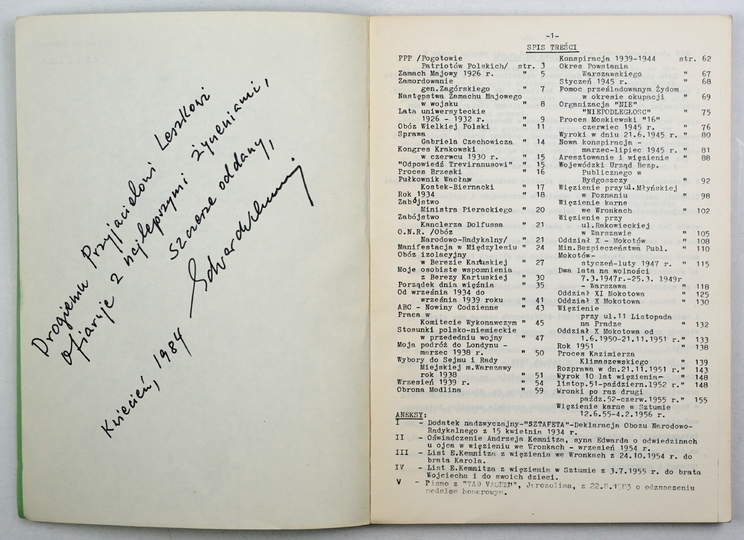 Drogiemu Przyjacielowi Leszkowi
ofiaruje z najlepszymi życzeniami,
Szczerze oddany,
Kwiecień, 1984
-1-
SPIS TREŚCI
PPP /Pogotowie
Patriotów Polskich/ str. 3
Zamach Majowy 1926 r. " 5
Zamordowanie
gen.Zagórskiego " 7
Następstwa Zamachu Majowego
w wojsku " 8
Lata uniwersyteckie
1926 - 1932 r. " 9
Obóz Wielkiej Polski " 11
Sprawa
Gabriela Czechowicza " 14
Kongres Krakowski
w czerwcu 1930 r. " 15
"Odpowiedź Treviranusowi" " 15
Proces Brzeski " 16
Pułkownik Wacław
Kostek-Biernacki " 17
Rok 1934 " 18
Zabójstwo
Ministra Pierackiego " 20
Zabójstwo
Kanclerza Dolfussa " 21
O.N.R. /Obóz
Narodowo-Radykalny/ " 21
Manifestacja w Międzylesiu " 24
Obóz izolacyjny
w Berezie Kartuskiej " 27
Moje osobiste wspomnienia
z Berezy Kartuskiej " 30
Porządek dnia więźnia " 35
Od września 1934 do
września 1939 roku " 41
ABC - Nowiny Codzienne " 43
Praca w
Komitecie Wykonawczym " 45
Stosunki polsko-niemieckie
w przededniu wojny " 47
Moja podróż do Londynu -
marzec 1938 r. " 50
Wybory do Sejmu i Rady
Miejskiej m.Warszawy
rok 1938 " 51
Wrzesień 1939 r. " 54
Obrona Modlina " 59
Konspiracja 1939-1944 str. 62
Okres Powstania
Warszawskiego " 67
Styczeń 1945 r. " 68
Pomoc prześladowanym Żydom
w okresie okupacji " 69
Organizacja "NIE"
"NIEPODLEGŁOŚĆ" " 75
Proces Moskiewski "16"
czerwiec 1945 r. " 76
Wyroki w dniu 21.6.1945 r. " 80
Nowa konspiracja -
marzec-lipiec 1945 r. " 81
Aresztowanie i więzienie " 88
Wojewódzki Urząd Bezp.
Publicznego w
Bydgoszczy " 92
Więzienie przy ul.Młyńskiej
w Poznaniu " 98
Więzienie karne
we Wronkach " 102
Więzienie przy
ul.Rakowieckiej
w Warszawie " 105
Oddział X - Mokotów " 108
Min.Bezpieczeństwa Publ. " 110
Mokotów-
styczeń-luty 1947 r. " 115
Dwa lata na wolności
7.3.1947r.-25.3. 1949r
- Warszawa " 118
Oddział XI Mokotowa " 125
Oddział X Mokotowa " 130
Więzienie
przy ul.11 Listopada
na Pradze " 132
Oddział X Mokotowa od
1.6.1950-21.11.1951 r. " 133
Rok 1951 " 138
Proces Kazimierza
Klimaszewskiego " 139
Rozprawa w dn.21.11.1951 r." 143
Wyrok 10 lat więzienia- " 148
listop.51-październ.1952 r." 148
Wronki po raz drugi
paźdz.52-czerw.1955 r" 155
Więzienie karne w Sztumie
12.6.55-4.2.1956 r.
ANEKSY:
I - Dodatek nadzwyczajny-"SZTAFETA"-Deklaracja Obozu Narodowo-
Radykalnego z 15 kwietnia 1934 r.
II - Oświadczenie Andrzeja Kemnitza, syna Edwarda o odwiedzinach
u ojca w więzieniu we Wronkach - wrzesień 1954 r.
III - List E.Kemnitza z więzienia we Wronkach z 24.10.1954 r. do
brata Karola.
IV - List E.Kemnitza z więzienia w Sztumie z 3.7.1955 r. do brata
Wojciecha i do swoich dzieci.
V - Pismo z "YAD VASHEM", Jerozolima, z 22.8.1983 o odznaczeniu
medalem honorowym.